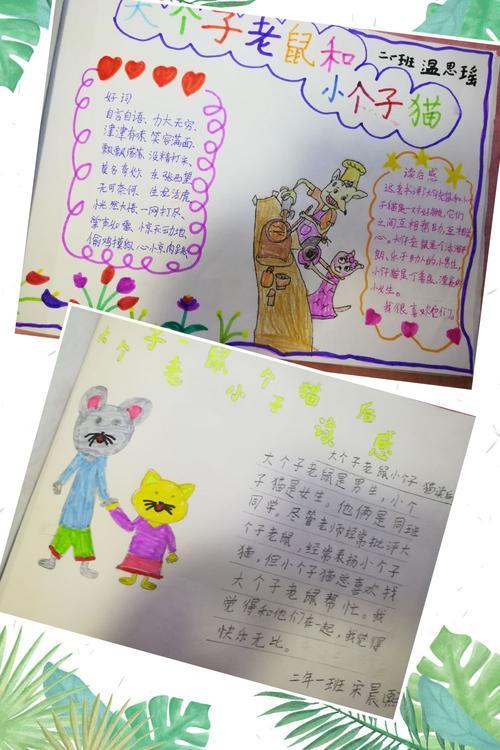 大个子老鼠和
小个子猫
二(一)班 温思瑶
好词
自言自语、力大无穷、
津津有味 笑容满面、
飘飘荡荡 没精打采、
莫名奇妙 东张西望、
无可奈何、生龙活虎
恍然大悟、一网打尽、
掌声如雷、惊天动地、
偷鸡摸狗、心惊肉跳
读后感
这本书讲了大个子老鼠和小个
子猫是一对好朋友,它们
之间互相帮助,互相关
心。大个子老鼠是个活泼开
朗、乐于助人的小男生,
小个子猫是个
小女生。
我很喜欢它们。
大个子老鼠小个子猫读后感
大个子老鼠小个子 猫读后
大个子老鼠是男生,小个
子猫是女生。他俩是同班
同学。尽管老师经常批评大
个子老鼠,经常表扬小个子
猫,但小个子猫总喜欢找
大个子老鼠帮忙。我
觉得和他们在一起,我觉得
快乐无比。
二年一班 宋晨熙